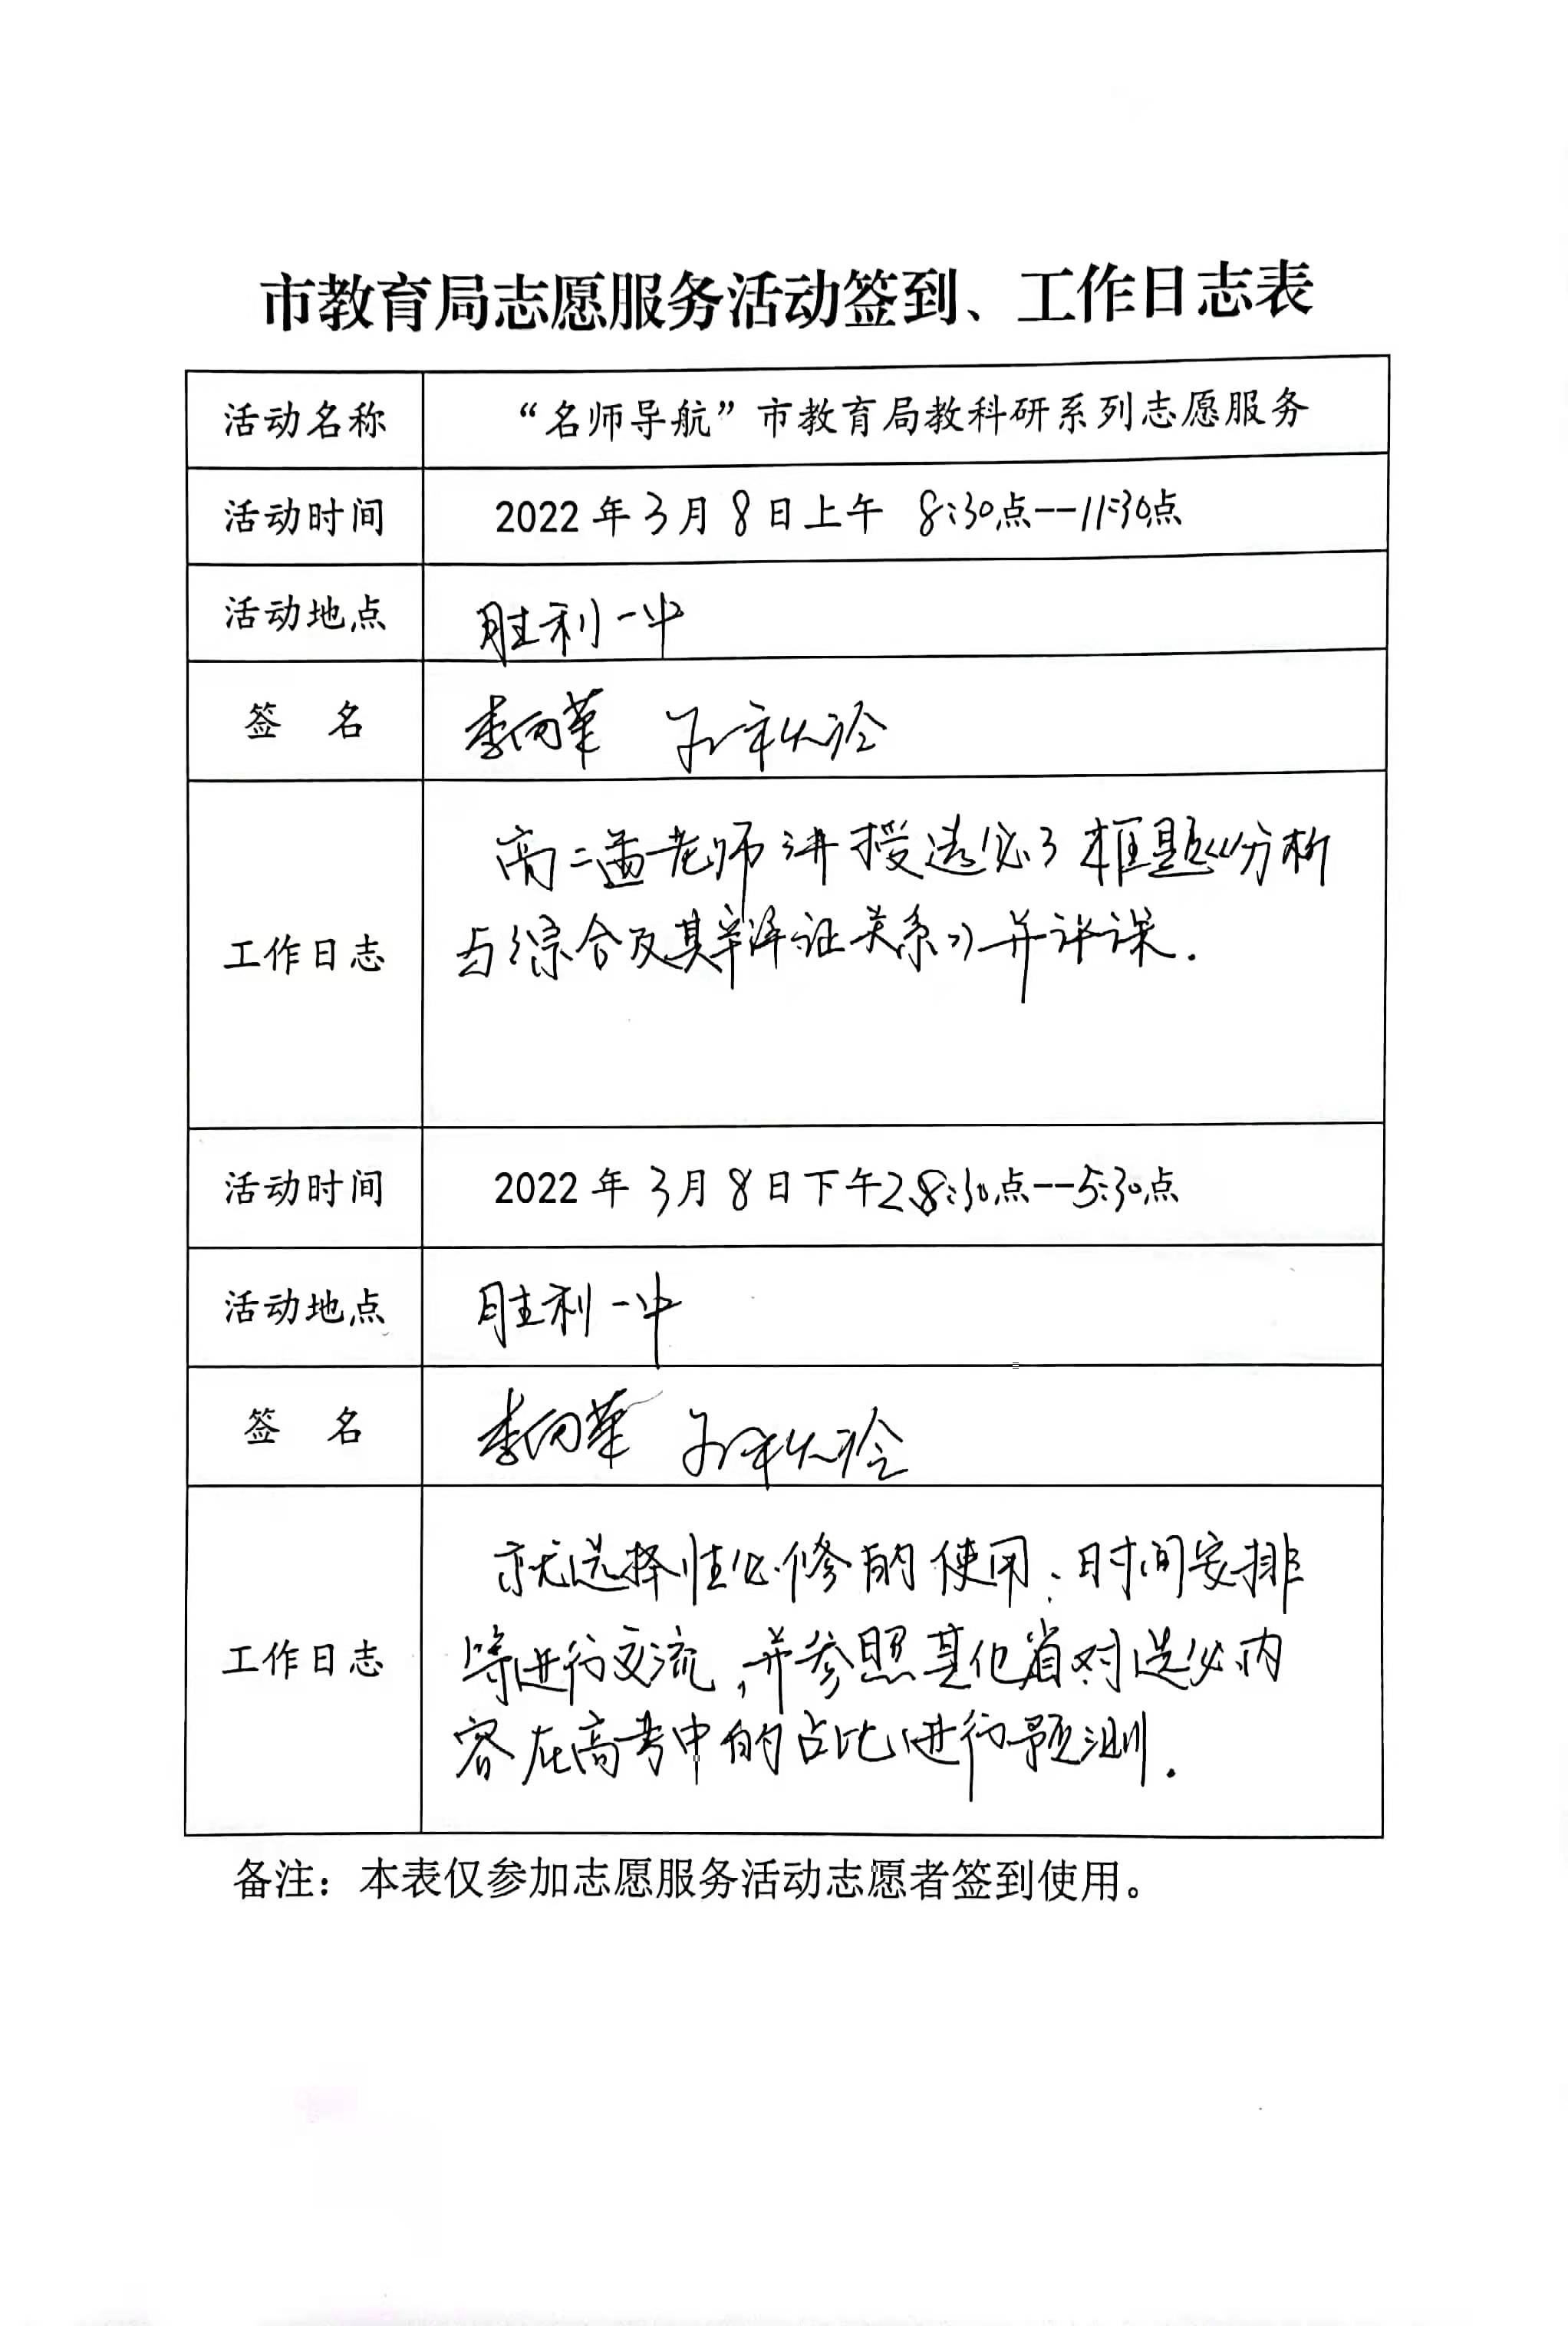 市教育局志愿服务活动签到、工作日志表
活动名称 “名师导航”市教育局教科研系列志愿服务
活动时间 2022年3月8日上午 8:30点--11:30点
活动地点 胜利一中
签 名 李向华
高二孟老师讲授选必3框题《分析
工作日志 与综合及其辩证关系》并评课.
活动时间 2022年3月8日下午28:30点--5:30点
活动地点 胜利一中
签 名 李向华
就选择性必修的使用、时间安排
工作日志 等进行交流,并参照其他省对选必内
容在高考中的占比进行预测.
备注：本表仅参加志愿服务活动志愿者签到使用。